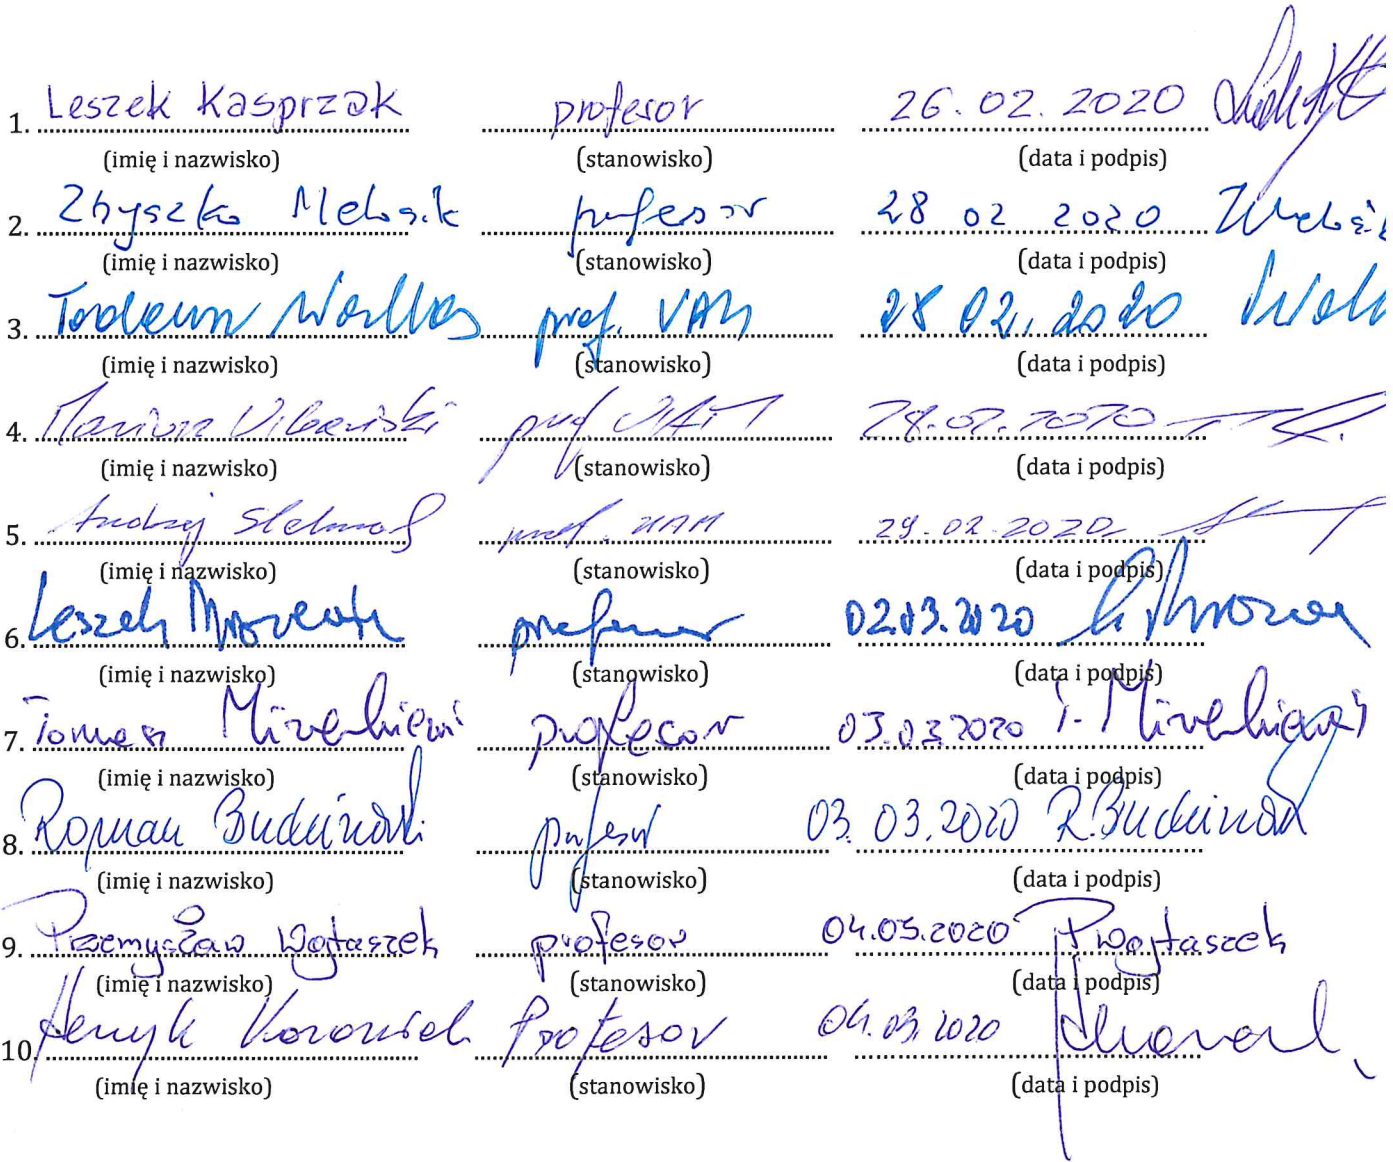 1. Leszek Kasprzak profesor 26.02.2020
(imię i nazwisko) (stanowisko) (data i podpis)
2. Zbyszko Melosik profesor 28 02 2020 ZMelosik
(imię i nazwisko) (stanowisko) (data i podpis)
3. Tadeusz Wallas prof. UAM 28 02. 2020
(imię i nazwisko) (stanowisko) (data i podpis)
4. prof UAM
(imię i nazwisko) (stanowisko) (data i podpis)
5. Andrzej prof. UAM 29.02.2020
(imię i nazwisko) (stanowisko) (data i podpis)
6. Leszek Mrozewicz profesor 02.03.2020
(imię i nazwisko) (stanowisko) (data i podpis)
7. Tomasz profesor 03.03.2020 T.
(imię i nazwisko) (stanowisko) (data i podpis)
8. Roman Budzinowski profesor 03.03.2020 R. Budzinowski
(imię i nazwisko) (stanowisko) (data i podpis)
9. Przemysław Wojtaszek profesor 04.03.2020 PWojtaszek
(imię i nazwisko) (stanowisko) (data i podpis)
10. Henryk Koroniak Profesor 04.03.2020
(imię i nazwisko) (stanowisko) (data i podpis)